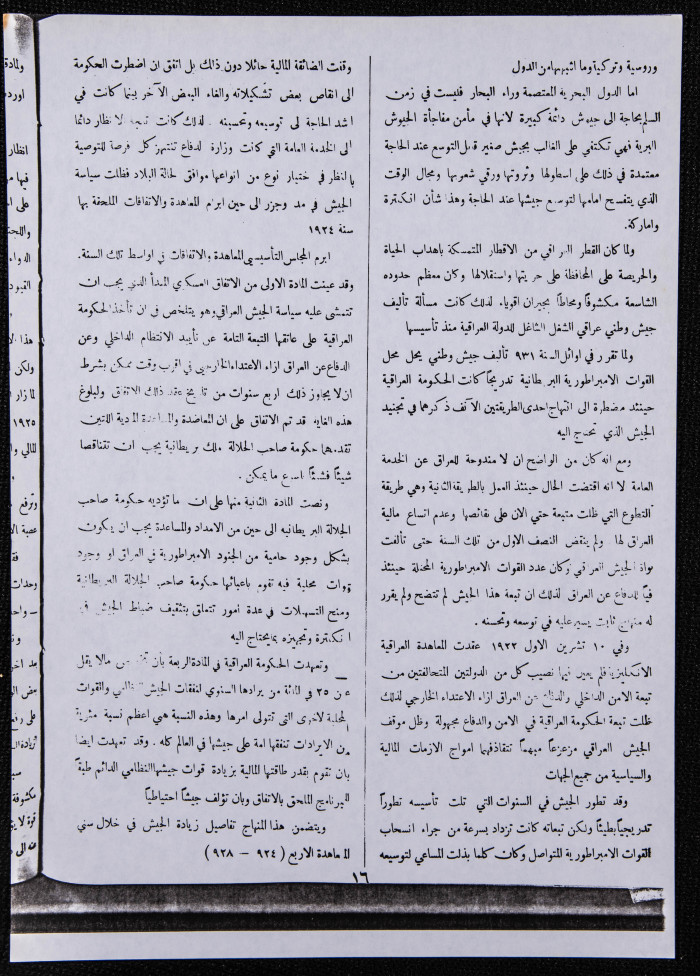 وروسية وتركية وما اشبهها من الدول
اما الدول البحرية المعتصمة وراء البحار فليست في زمن
السلم بحاجة الى جيوش دائمة كبيرة لانها في مأمن مفاجأة الجيوش
البرية فهي تكتفي على الغالب بجيش صغير قابل التوسع عند الحاجة
معتمدة في ذلك على اسطولها وثروتها ورقي شعوبها ومجال الوقت
الذي ينفسح امامها لتوسيع جيشها عند الحاجة وهذا شأن انكلترة
واماركة.
ولما كان القطر العراقي من الاقطار المتمسكة باهداب الحياة
والحريصة على المحافظة على حريتها واستقلالها وكان معظم حدوده
الشاسعة مكشوفاً ومحاطاً بجيران اقوياء لذلك كانت مسألة تأليف
جيش وطني عراقي الشغل الشاغل للدولة العراقية منذ تأسيسها
ولما تقرر في اوائل السنة ٩٣١ تأليف جيش وطني يحل محل
القوات الامبراطورية البريطانية تدريجاً كانت الحكومة العراقية
حينئذ مضطرة الى انتهاج احدى الطريقتين الآنف ذكرهما في تجنيد
الجيش الذي تحتاج اليه
ومع انه كان من الواضح ان لا مندوحة للعراق عن الخدمة
العامة لا انه اقتضت الحال حينئذ العمل بالطريقة الثانية وهي طريقة
التطوع التي ظلت متبعة حتى الان على نقائصها وعدم اتساع مالية
العراق لها ولم ينقض النصف الاول من تلك السنة حتى تألفت
نواة الجيش العراقي وكان عدد القوات الامبراطورية المحتلة حينئذ
للدفاع عن العراق لذلك ان تبعة هذا الجيش لم تتضح ولم يقرر
له منهاج ثابت يسير عليه في توسعه وتحسنه .
وفي ١٠ تشرين الاول ١٩٢٢ عقدت المعاهدة العراقية
الانكليزية فلم يعين فيها نصيب كل من الدولتين المتحالفتين من
تبعة الامن الداخلي والدفاع عن العراق ازاء الاعتداء الخارجي لذلك
ظلت تبعة الحكومة العراقية في الامن والدفاع مجهولة وظل موقف
الجيش العراقي مزعزعاً مبهماً تتقاذفهما امواج الازمات المالية
والسياسية من جميع الجهات
وقد تطور الجيش في السنوات التي تلت تأسيسه تطوراً
تدريجياً بطيئاً ولكن تبعاته كانت تزداد بسرعة من جراء انسحاب
القوات الامبراطورية المتواصل وكان كلما بذلت المساعي لتوسيعه
وقفت الضائقة المالية حائلا دون ذلك بل اتفق ان اضطرت الحكومة
الى انقاص بعض تشكيلاته والغاء البعض الآخر بينما كانت في
اشد الحاجة لى توسيعه وتحسينه . لذلك كانت تتجه الانظار دائما
الى الخدمة العامة التي كانت وزارة لدفاع تنتهز كل فرصة للتوصية
بالنظر في ختيار نوع من انواعها موافق لحالة البلاد فظلت سياسة
الجيش في مد وجزر الى حين ابرام المعاهدة والاتفاقات الملحقة بها
سنة ١٩٢٤
ابرم المجلس التأسيسي المعاهدة والاتفاقات في اواسط تلك السنة.
وقد عينت المادة الاولى من الاتفاق العسكري المبدأ الذي يجب ان
تتمشى عليه سياسة الجيش العراقي وهو يتلخص في ان تأخذ الحكومة
العراقية على عاتقها التبعة التامة عن تأييد الانتظام الداخلي وعن
الدفاع عن العراق ازاء الاعتداء الخارجي في اقرب وقت ممكن بشرط
ان لا يجاوز ذلك اربع سنوات من تاريخ عقد ذلك الاتفاق ولبلوغ
هذه الغاية قد تم الاتفاق على ان المعاضدة والمساعدة المادية اللتين
تقدمهما حكومة صاحب الجلالة ملك بريطانية يجب ان تتناقصا
شيئاً فشيئاً باسرع ما يمكن .
ونصت المادة الثانية منها على ان ما تؤديه حكومة صاحب
الجلالة البريطانية الى حين من الامداد والمساعدة يجب ان يكون
بشكل وجود حامية من الجنود الامبراطورية في العراق او وجود
قوات محلية فيه تقوم باعبائها حكومة صاحب الجلالة البريطانية
ومنح التسهيلات في عدة امور تتعلق بتثقيف ضباط الجيش في
انكلترة وتجهيزه بما يحتاج اليه
وتعهدت الحكومة العراقية في المادة الرابعة بان تخصص مالا يقل
عن ٢٥ في المائة من يرادها السنوي لنفقات الجيش النظامي والقوات
المحلية لاخرى التي تتولى امرها وهذه النسبة هي اعظم نسبة مئوية
من الايرادات تنفقها امة على جيشها في العالم كله . وقد تعهدت ايضا
بان تقوم بقدر طاقتها المالية بزيادة قوات جيشها النظامي الدائم طبقاً
للبرنامج الملحق بالاتفاق وبان تؤلف جيشاً احتياطياً
ويتضمن هذا المنهاج تفاصيل زيادة الجيش في خلال سني
المعاهدة الاربع ( ٩٢٤ — ٩٢٨ )
١٦